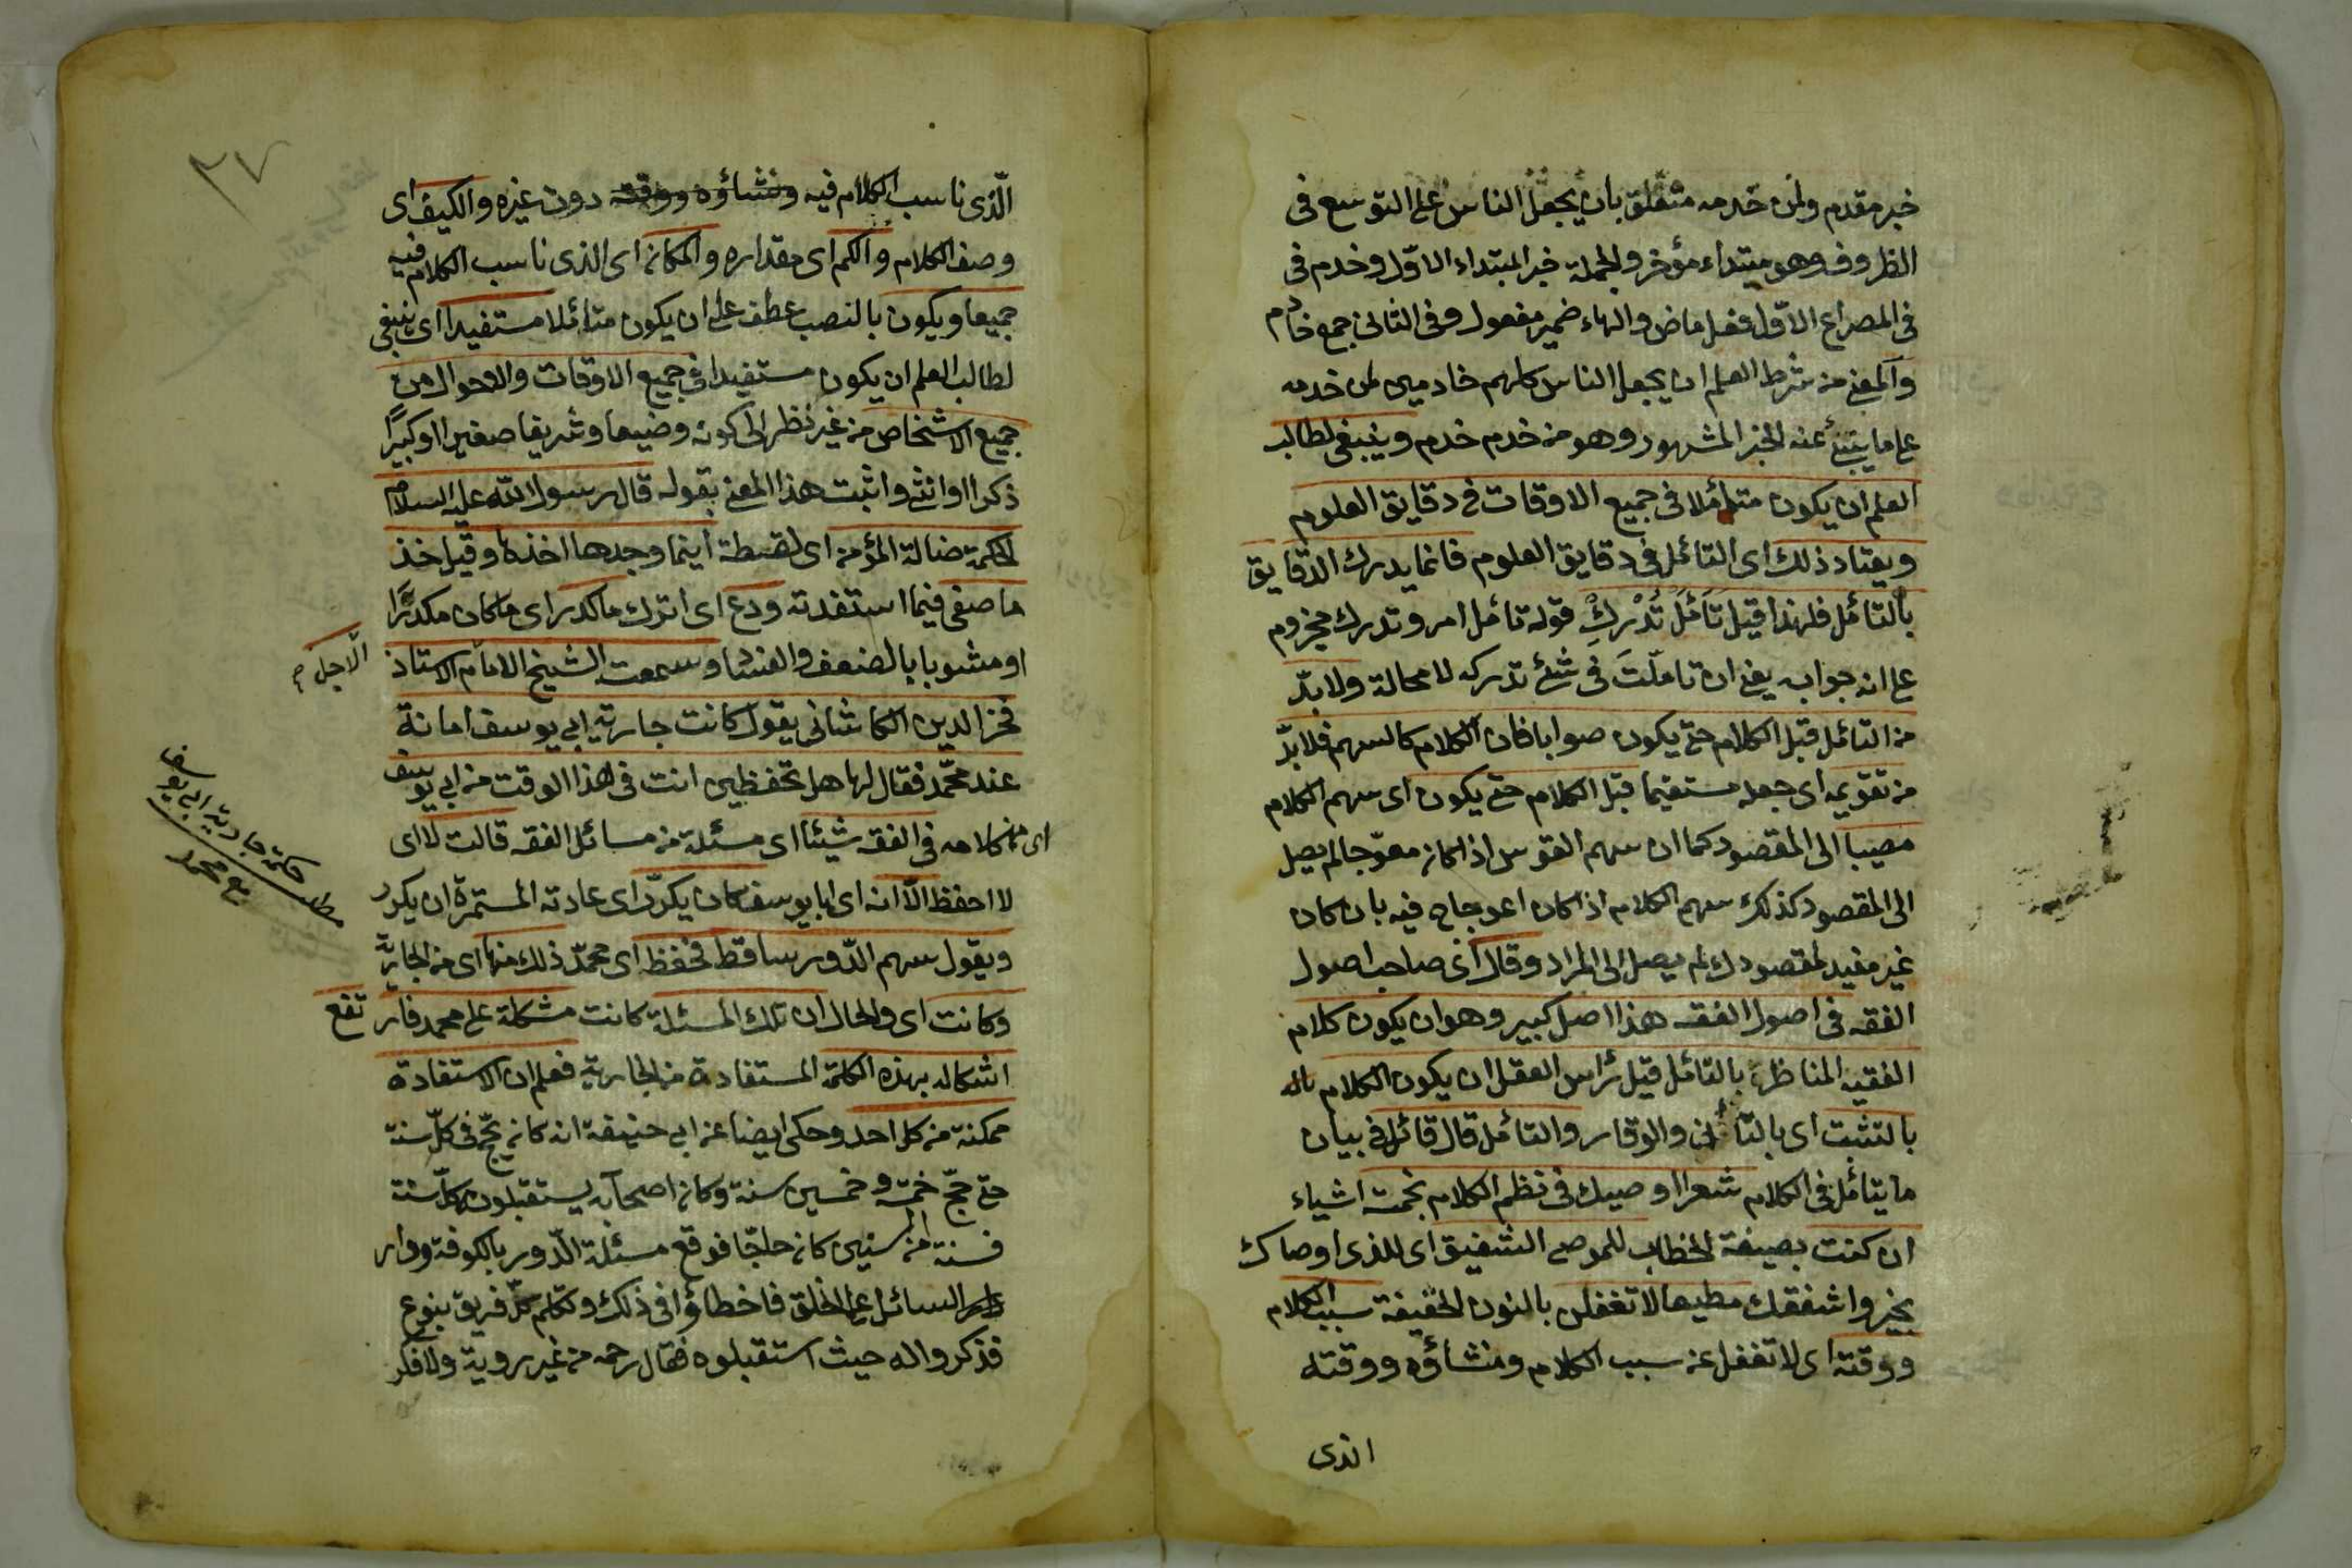 خبر مقدم ولمن خدمه متعلق بان يجعل الناس على التوسع فى
الظروف وهو مبتداء مؤخر والجملة خبر المبتداء الاوّل وخدم فى
فى المصراع الاوّل فعل ماض والهاء ضمير مفعول وفى الثانى جمع خادم
والمعنى من شرط العلم ان يجعل الناس كلهم خادمين لمن خدمه
على ما ينبئ عنه الخبر المشهور وهو من خدم خدم وينبغى لطالب
العلم ان يكون متأملا فى جميع الاوقات فى دقايق العلوم
ويعتاد ذلك اى التأمل فى دقايق العلوم فانما يدرك الدقايق
بالتأمل فلهذا قيل تَأَمَّلْ تُدْرِكْ قوله تأمل امر وتدرك مجزوم
على انه جوابه يعنى ان تاملّتَ فى شئ تدركه لا محالة ولا بدّ
من التأمل قبل الكلام حتى يكون صوابا فان الكلام كالسهم فلا بدّ
من تقويمه اى جعله مستقيما قبل الكلام حتى يكون اى سهم الكلام
مصيبا الى المقصود كما ان سهم القوس اذا كان معوّجا لم يصل
الى المقصود كذلك سهم الكلام اذا كان اعوجاج فيه بان كان
غير مفيد لمقصودك لم يصل الى المراد وقال اى صاحب اصول
الفقه فى اصول الفقه هذا اصل كبير وهو ان يكون كلام
الفقيه المناظر بالتأمل قيل رأس العقل ان يكون الكلام
بالتثبت اى بالتأنى والوقار والتأمل قال قائل فى بيان
ما يتأمل فى الكلام شعرا اوصيك فى نظم الكلام بخمسة اشياء
ان كنت بصيغة الخطاب للموصى الشفيق اى للذى اوصاك
بخير واشفقك مطيعا لا تغفلن بالنون الخفيفة سبب الكلام
ووقته اى لا تغفل عن سبب الكلام ومنشاؤه ووقته
الذى
٣٧
الّذى ناسب الكلام فيه ومنشاؤه ووقته دون غيره والكيف اى
وصف الكلام والكم اى مقداره والمكان اى الذى ناسب الكلام فيه
جميعا ويكون بالنصب عطف على ان يكون متأملا مستفيدا اى ينبغى
لطالب العلم ان يكون مستفيدا فى جميع الاوقات والاحوال من
جميع الاشخاص من غير نظر الى كونه وضيعا وشريفا صغيرا او كبيرًا
ذكرا او انثى واثبت هذا المعنى بقوله قال رسول الله عليه السلام
الحكمة ضالة المؤمن اى لقطة اينما وجدها اخذها وقيل خذ
ما صفى فيما استفدته ودع اى اترك ما كدر اى ما كان مكدرًا
او مشوبا بالضعف والفساد وسمعت الشيخ الامام الاستاذ
الاجل
فخر الدين الكاشانى يقول كانت جارية ابى يوسف امانة
عند محمّد فقال لها هل تحفظين انت فى هذا الوقت من ابى يوسف
اى من كلامه فى الفقه شيئا اى مسئلة من مسائل الفقه قالت لا اى
لا احفظ الّا انه اى ابا يوسف كان يكرّر اى عادته المستمرة ان يكرر
ويقول سهم الدّور ساقط فحفظ اى محمّد ذلك منها اى من الجارية
وكانت اى والحال ان تلك المسئلة كانت مشكلة على محمد فارتفع
اشكاله بهذه الكلمة المستفادة من الجارية فعلم ان الاستفادة
ممكنة من كل احد وحكى ايضا عن ابى حنيفة انه كان يحجّ فى كلّ سنة
حتى حجّ خمسة وخمسين سنة وكان اصحابه يستقبلون كلّ سنة
فسنة من السنين كان حاجّا فوقع مسئلة الدّور بالكوفة ودار
السائل على الخلق فاخطاؤا فى ذلك وتكلم كلّ فريق بنوع
فذكروا له حيث استقبلوه فقال رحمه من غير روية ولا فكر
مطلب حكمة جارية ابى يوسف
مع محمد